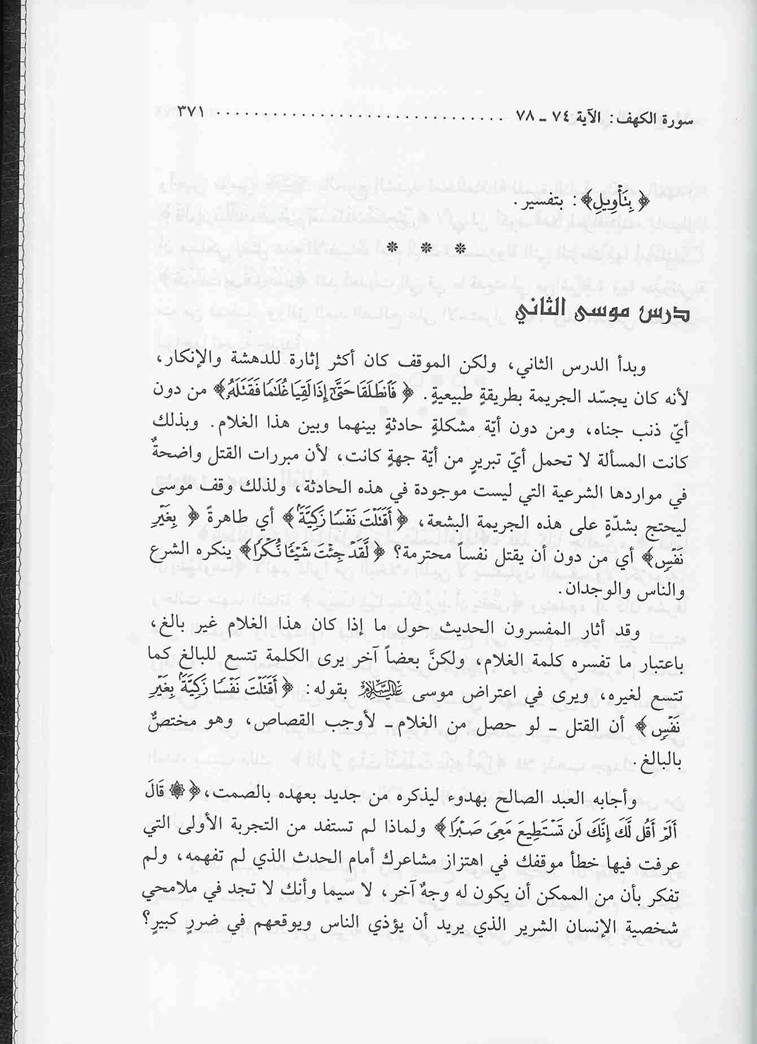 سورة الكهف: الآية ٧٤ - ٧٨ ................................ ٣٧١
﴿بِتَأْوِيلِ﴾: بتفسير.
* * *
درس موسى الثاني
وبدأ الدرس الثاني، ولكن الموقف كان أكثر إثارة للدهشة والإنكار،
لأنه كان يجسّد الجريمة بطريقةٍ طبيعيةٍ. ﴿فَٱنطَلَقَا حَتَّىٰٓ إِذَا لَقِيَا غُلَٰمًا فَقَتَلَهُۥ﴾ من دون
أيّ ذنب جناه، ومن دون أيّة مشكلةٍ حادثةٍ بينهما وبين هذا الغلام. وبذلك
كانت المسألة لا تحمل أيّ تبريرٍ من أيّة جهةٍ كانت، لأن مبررات القتل واضحةٌ
في مواردها الشرعية التي ليست موجودة في هذه الحادثة، ولذلك وقف موسى
ليحتج بشدّةٍ على هذه الجريمة البشعة، ﴿أَقَتَلْتَ نَفْسًا زَكِيَّةًۢ﴾ أي طاهرةً ﴿بِغَيْرِ
نَفْسٍ﴾ أي من دون أن يقتل نفساً محترمة؟ ﴿لَّقَدْ جِئْتَ شَيْـًٔا نُّكْرًا﴾ ينكره الشرع
والناس والوجدان.
وقد أثار المفسرون الحديث حول ما إذا كان هذا الغلام غير بالغ،
باعتبار ما تفسره كلمة الغلام، ولكنَّ بعضاً آخر يرى الكلمة تتسع للبالغ كما
تتسع لغيره، ويرى في اعتراض موسى عليه السلام بقوله: ﴿أَقَتَلْتَ نَفْسًا زَكِيَّةًۢ بِغَيْرِ
نَفْسٍ﴾ أن القتل - لو حصل من الغلام - لأوجب القصاص، وهو مختصٌّ
بالبالغ.
وأجابه العبد الصالح بهدوء ليذكره من جديد بعهده بالصمت، ﴿۞ قَالَ
أَلَمْ أَقُل لَّكَ إِنَّكَ لَن تَسْتَطِيعَ مَعِىَ صَبْرًا﴾ ولماذا لم تستفد من التجربة الأولى التي
عرفت فيها خطأ موقفك في اهتزاز مشاعرك أمام الحدث الذي لم تفهمه، ولم
تفكر بأن من الممكن أن يكون له وجهٌ آخر، لا سيما وأنك لا تجد في ملامحي
شخصية الإنسان الشرير الذي يريد أن يؤذي الناس ويوقعهم في ضررٍ كبيرٍ؟